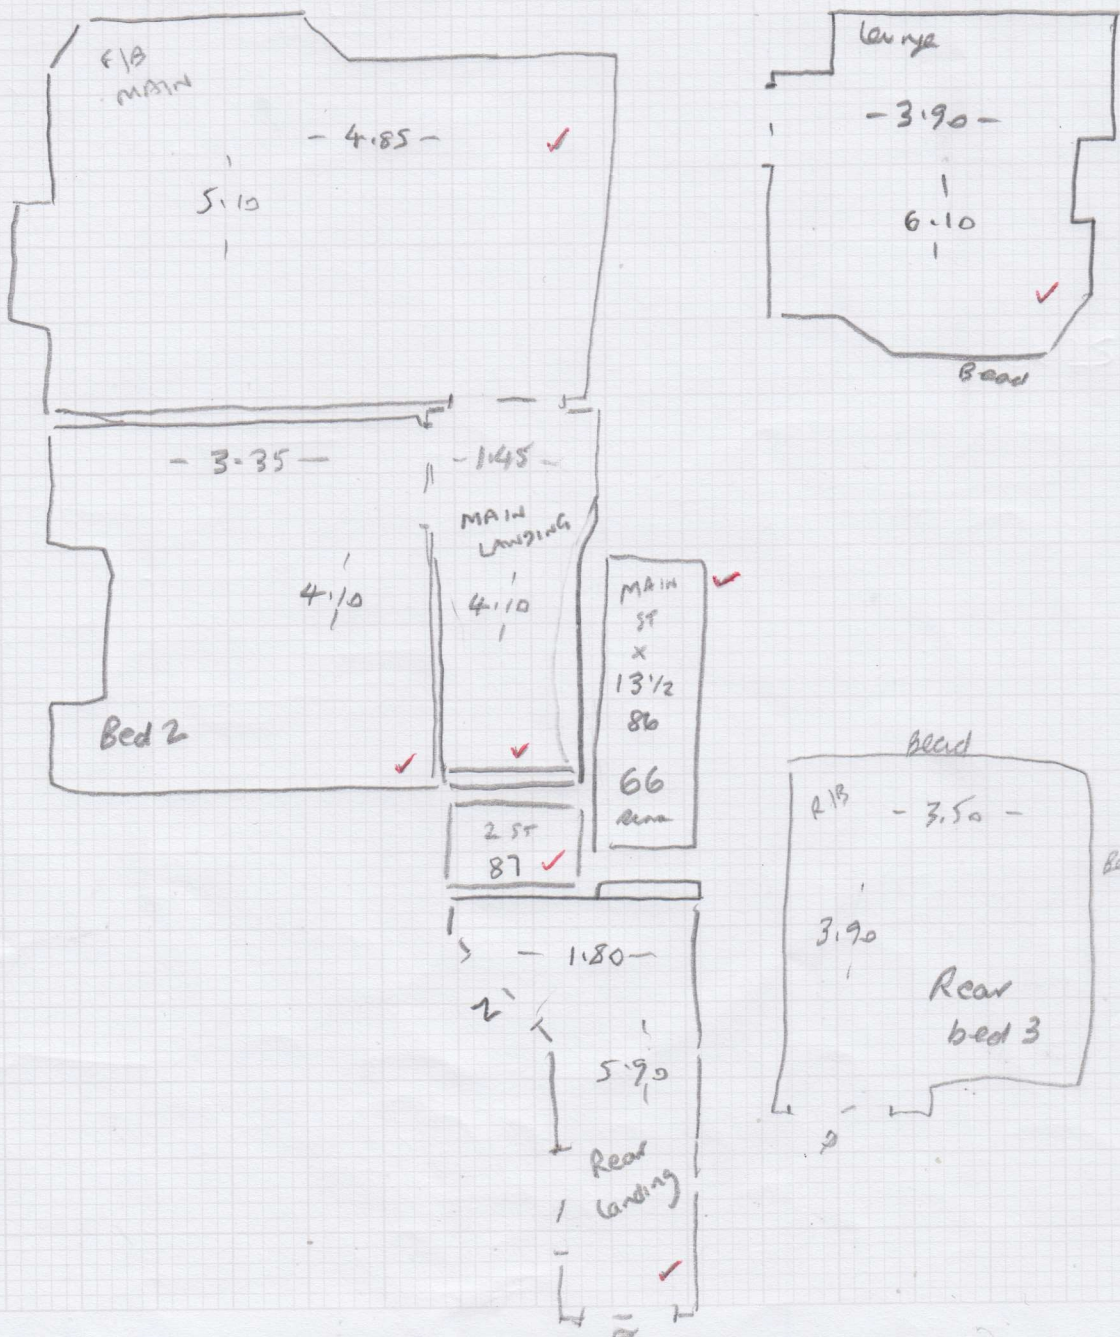 F/B
MAIN
- 4.85 -
5.10
Lounge
- 3.90 -
6.10
Bead
- 3.35 -
4.10
Bed 2
- 1.45 -
MAIN
LANDING
4.10
MAIN
ST
x
13 1/2
86
66
2 ST
87
- 1.80 -
5.90
Rear
Landing
Bead
R/B
- 3.50 -
3.90
Rear
bed 3